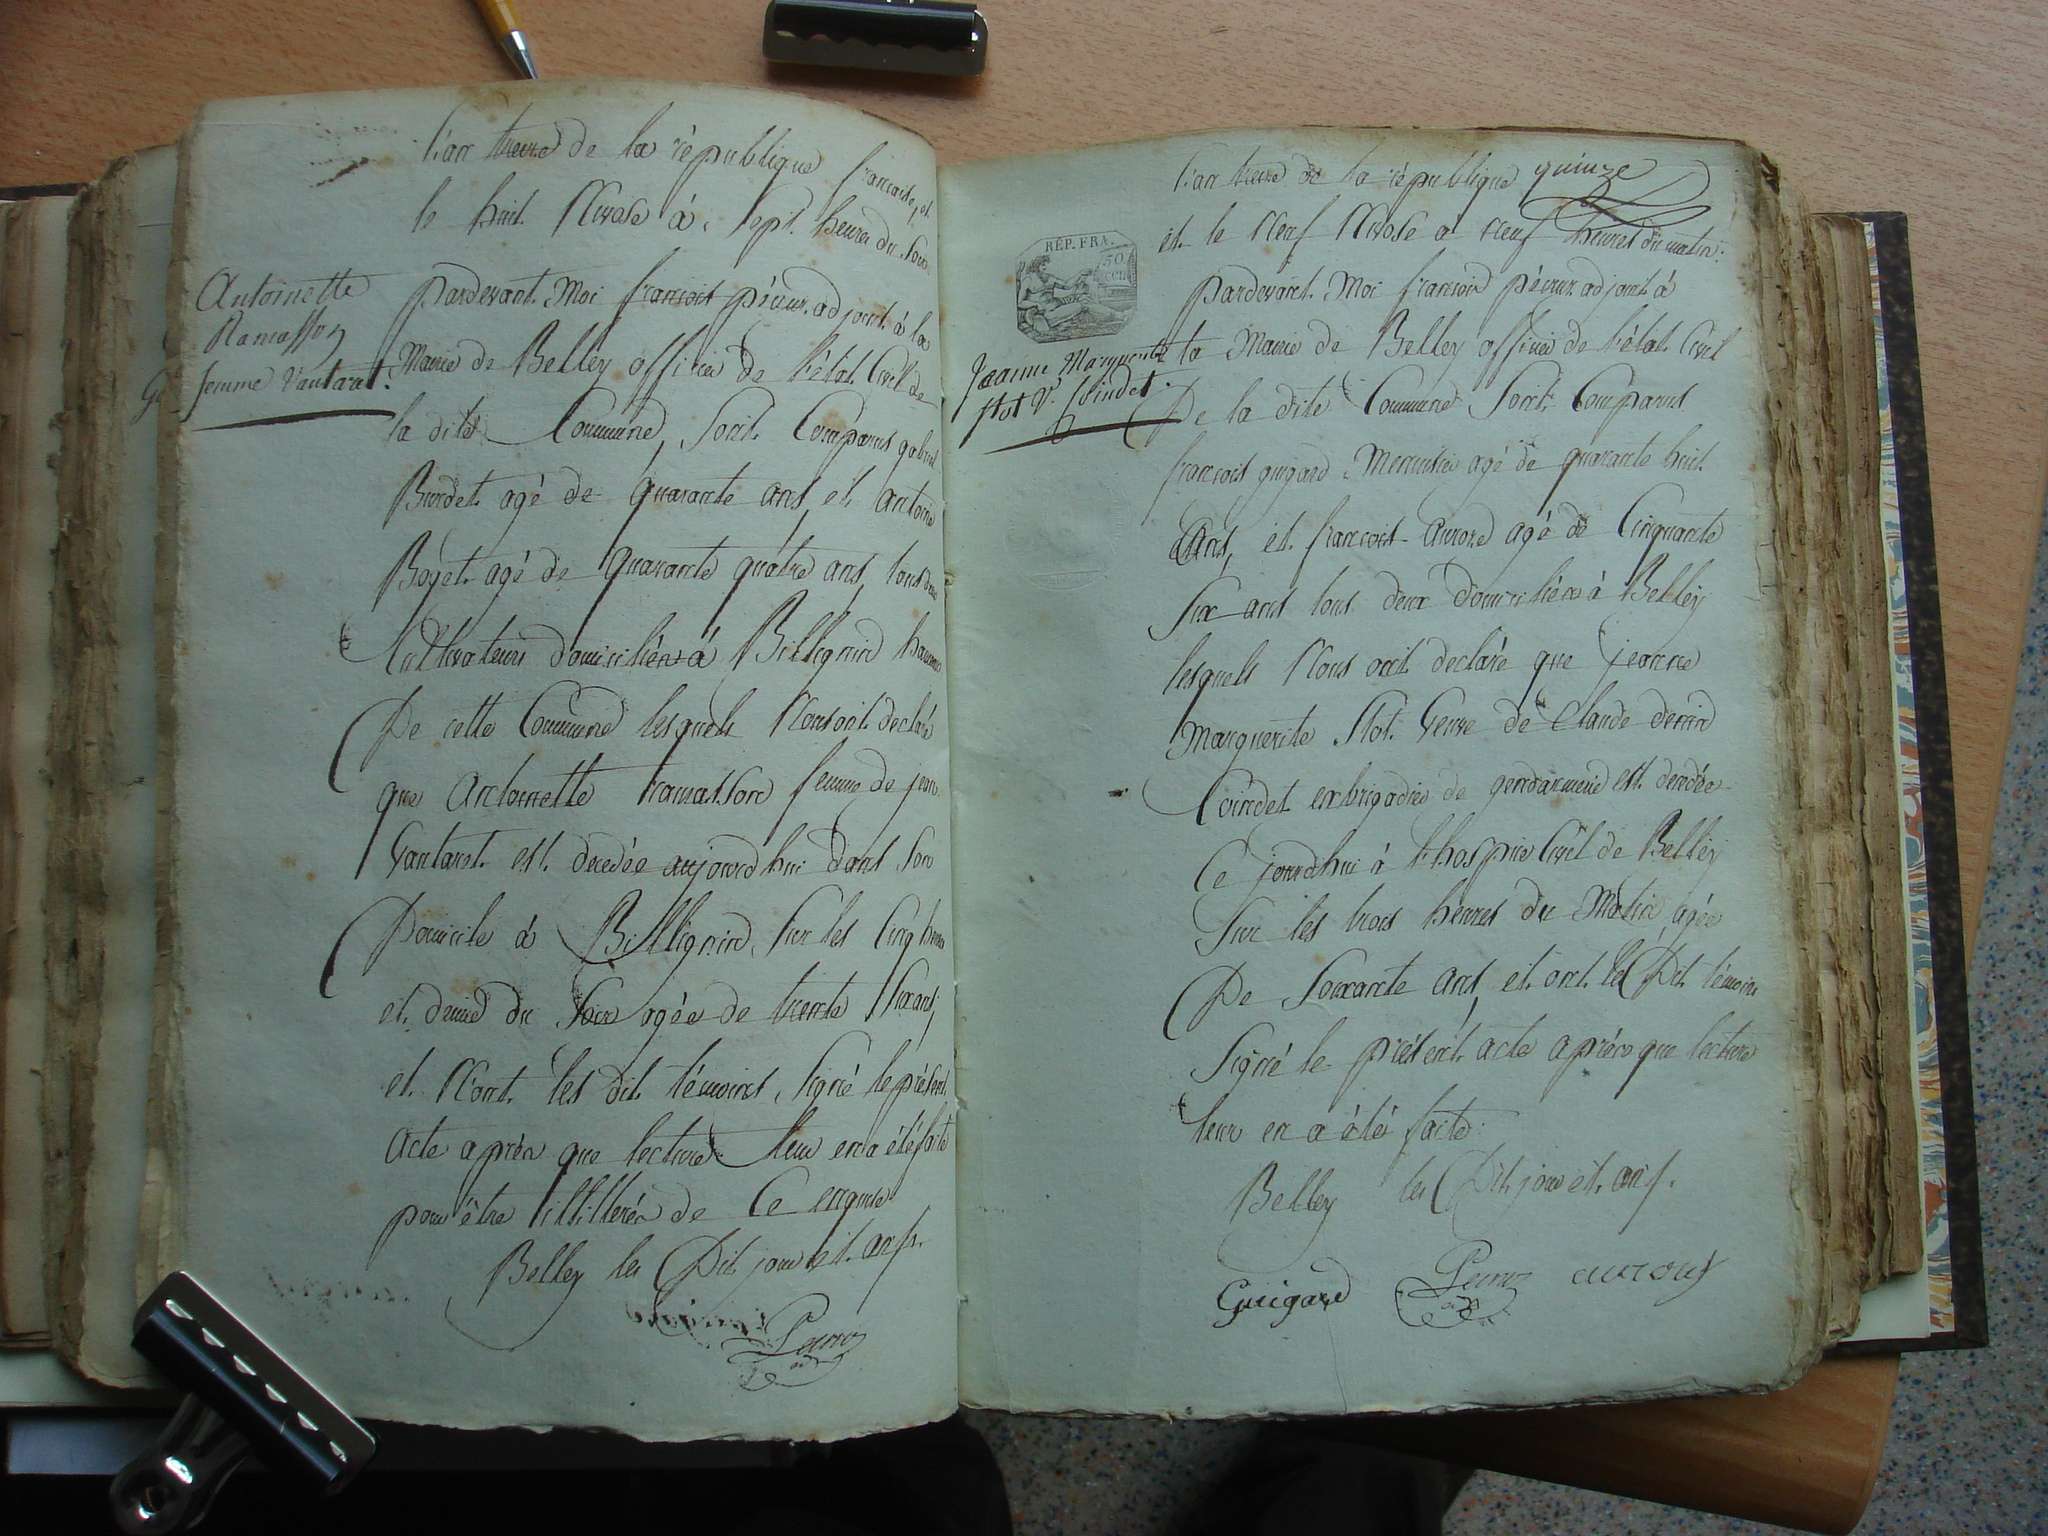 l'an treize de la république francaise, et
le huit Nivose à sept heures du soir
pardevant moi françois péroux adjoint à la
Antoinette
Ramasson
femme Vantaret.
Mairie de Belley officier de l'état Civil de
la dite Commune, sont Comparus gabriel
Burdet agé de quarante ans, et antoine
Boyet agé de quarante quatre ans, tous deux
Cultivateurs domiciliés à Billignin hameau
De cette Commune lesquels Nous ont declaré
que Antoinette ramasson femme de jean
Vantaret est decedée aujourd'hui dans son
Domicile à Billignin, sur les Cinq heures
et demie du soir agée de trente six ans,
et N'ont les dit témoins signé le présent
acte après que lecture leur en a été faite
pour être illitterés de Ce enquis
Belley les Dit jour et an
quinze
l'an treize de la république
et le Neuf Nivose a Neuf heures du matin.
RÉP. FRA.
50
cen
pardevant moi francois péroux adjoint à
la Mairie de Belley officier de l'état Civil
Jeanne Marguerite
Stot Ve. Coindet.
De la dite Commune sont Comparus
francois guigard Menuisier agé de quarante huit
Ans, et francois auroze agé de Cinquante
Six ans tous deux domiciliés à Belley
lesquels Nous ont declaré que jeanne
Marguerite Stot Veuve de Claude
Coindet exbrigadier de gendarmerie est decedée
Ce jourdhui à l'hospice Civil de Belley
Sur les trois heures du Matin, agée
De Soixante ans, et ont les Dit témoins
Signé le présent acte après que lecture
leur en a été faite
Belley les Dit jour et an
Guigard